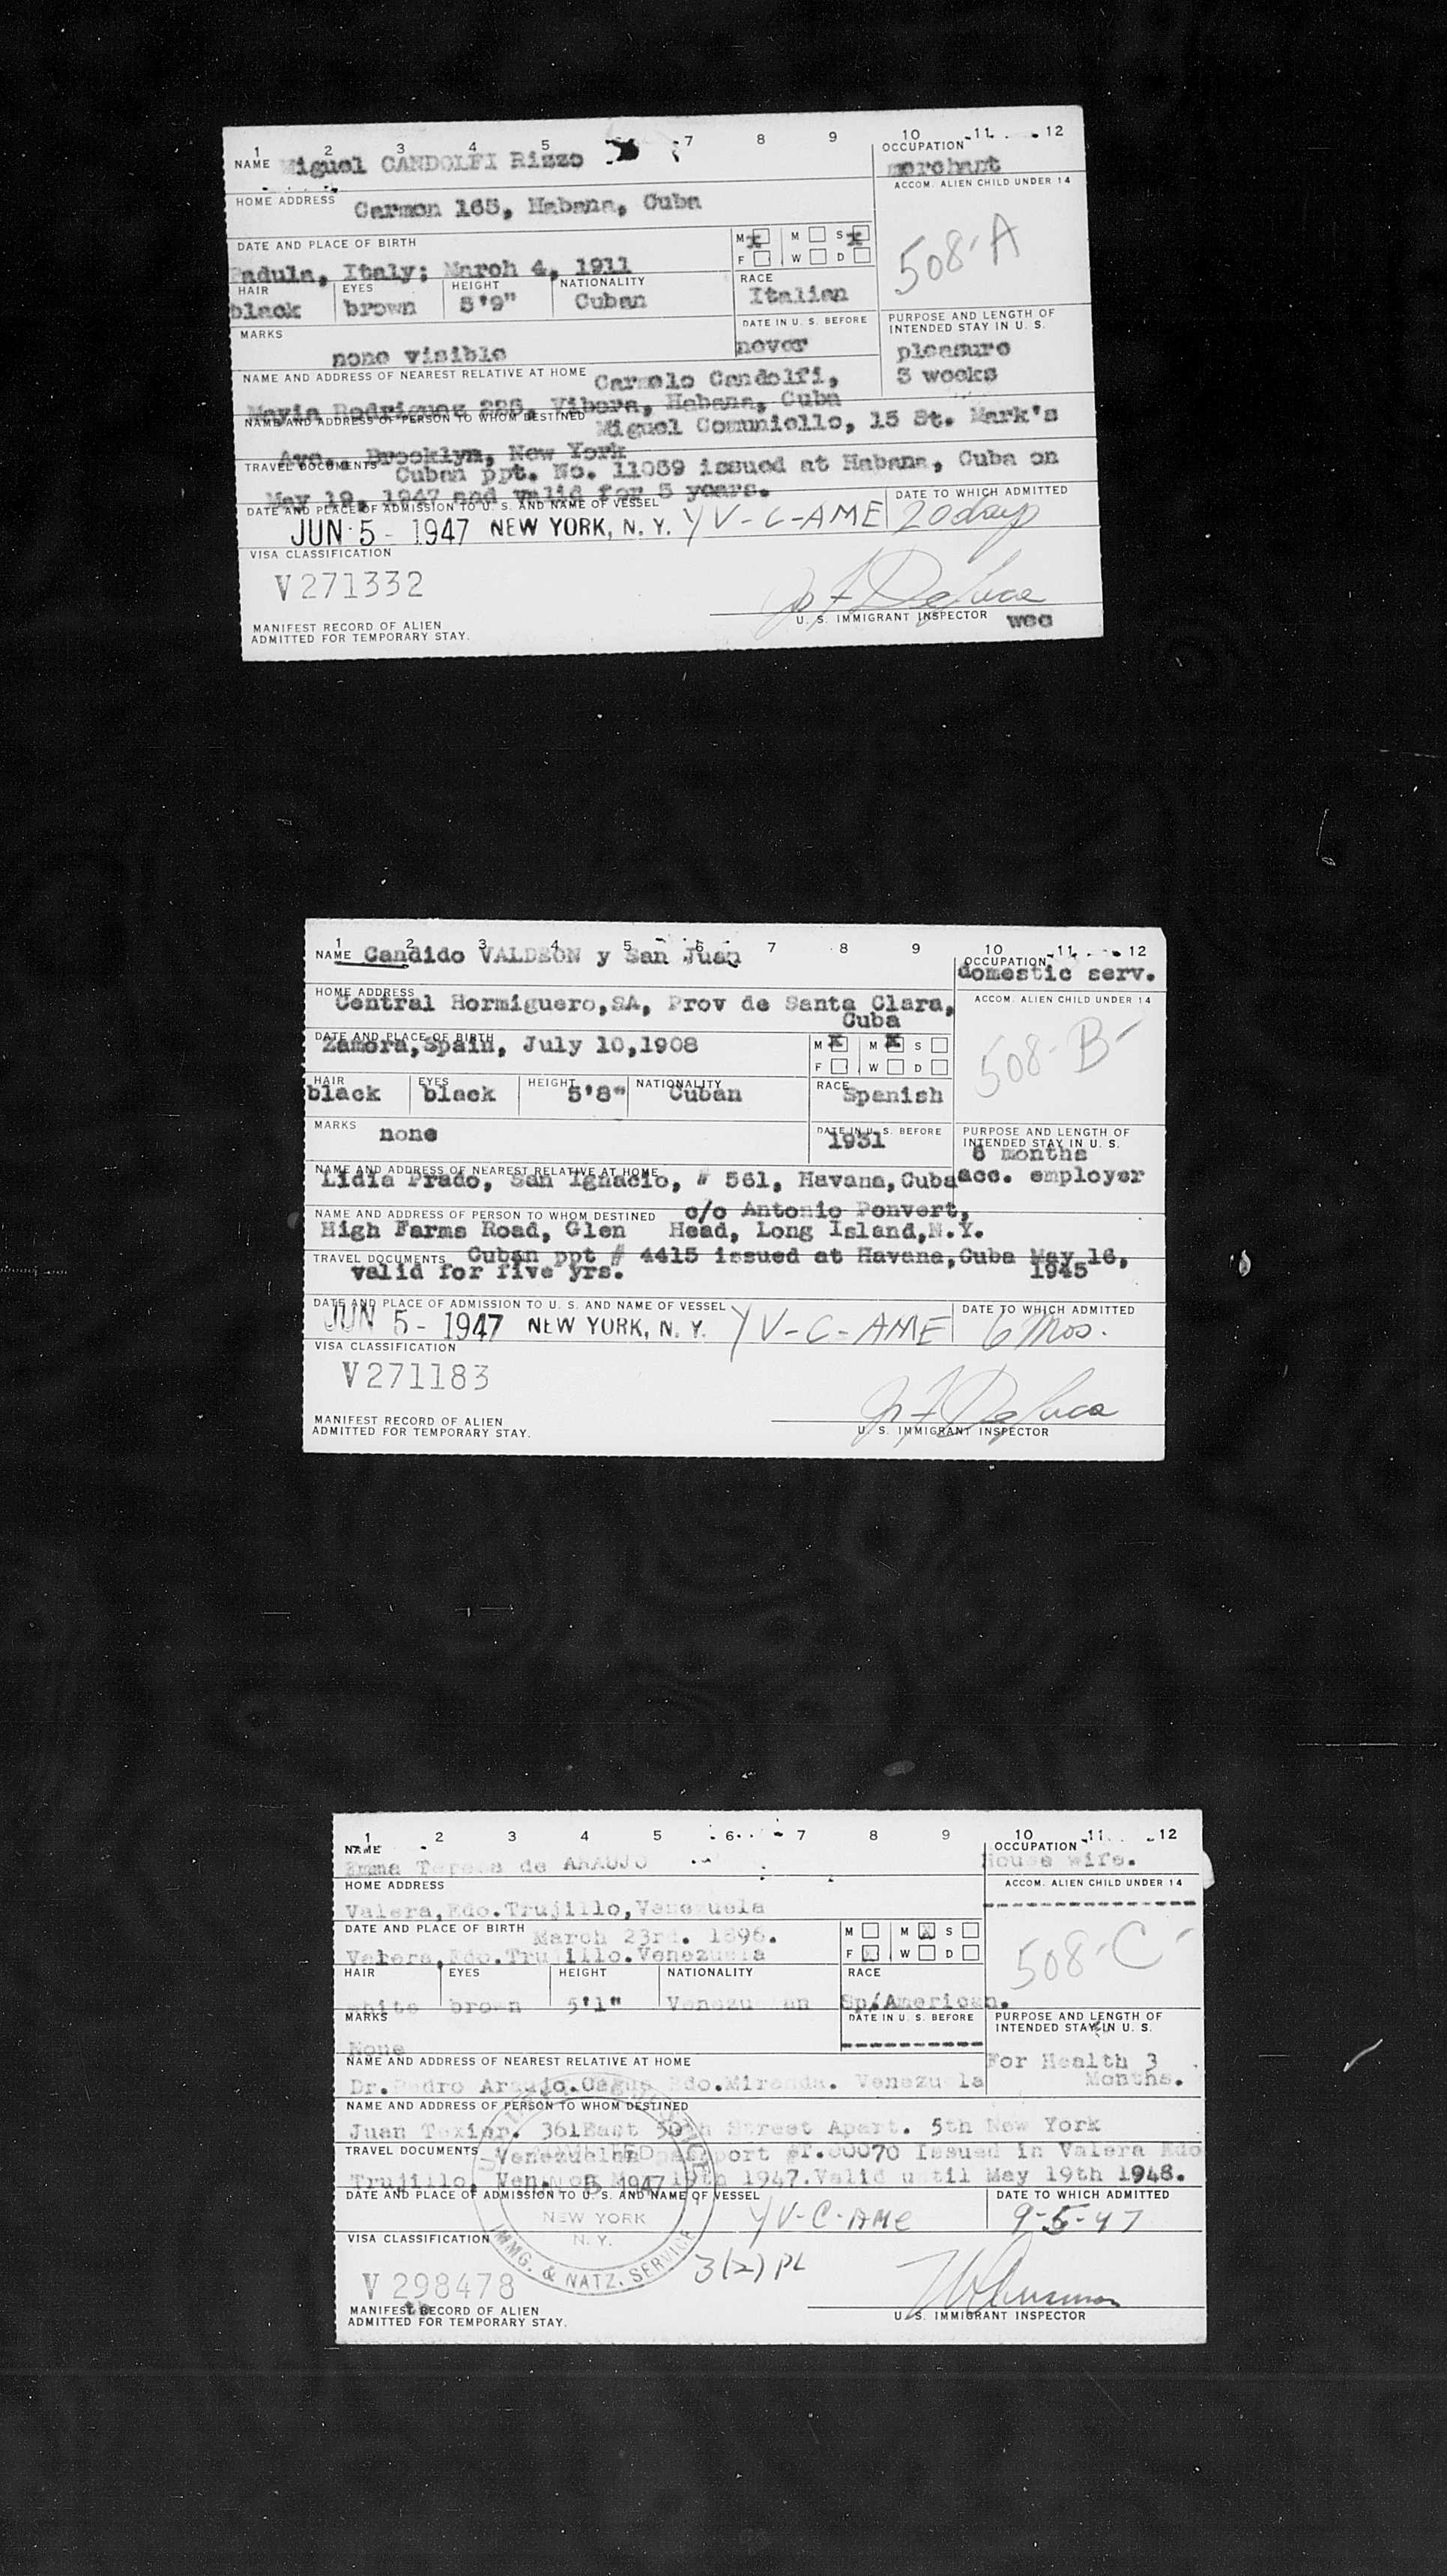 1 2 3 4 5 7 8 9 10 11 12
NAME Miguel CANDOLFI Rizzo
OCCUPATION
merchant
ACCOM. ALIEN CHILD UNDER 14
508-A
HOME ADDRESS Carmen 165, Habana, Cuba
DATE AND PLACE OF BIRTH
Padula, Italy; March 4, 1911
M X M S X
F W D
HAIR EYES HEIGHT NATIONALITY RACE
black brown 5'9" Cuban Italian
MARKS DATE IN U. S. BEFORE PURPOSE AND LENGTH OF
INTENDED STAY IN U. S.
none visible never pleasure
3 weeks
NAME AND ADDRESS OF NEAREST RELATIVE AT HOME Carmelo Candolfi,
Mayia Rodriguez 228, Vibora, Habana, Cuba
NAME AND ADDRESS OF PERSON TO WHOM DESTINED Miguel Comuniello, 15 St. Mark's
Ave., Brooklyn, New York
TRAVEL DOCUMENTS Cuban ppt. No. 11059 issued at Habana, Cuba on
May 19, 1947 and valid for 5 years.
DATE AND PLACE OF ADMISSION TO U. S. AND NAME OF VESSEL DATE TO WHICH ADMITTED
JUN 5 - 1947 NEW YORK, N. Y. YV-C-AME 20 days
VISA CLASSIFICATION
V271332
MANIFEST RECORD OF ALIEN
ADMITTED FOR TEMPORARY STAY.
U. S. IMMIGRANT INSPECTOR
1 2 3 4 5 6 7 8 9 10 11 12
NAME Candido VALDEON y San Juan
OCCUPATION
domestic serv.
ACCOM. ALIEN CHILD UNDER 14
508-B-
HOME ADDRESS
Central Hormiguero,SA, Prov de Santa Clara,
Cuba
DATE AND PLACE OF BIRTH
Zamora,Spain, July 10,1908
M X M X S
F W D
HAIR EYES HEIGHT NATIONALITY RACE
black black 5'8" Cuban Spanish
MARKS none
DATE IN U. S. BEFORE
1931
PURPOSE AND LENGTH OF
INTENDED STAY IN U. S.
8 months
acc. employer
NAME AND ADDRESS OF NEAREST RELATIVE AT HOME
Lidia Prado, San Ignacio, # 561, Havana,Cuba
NAME AND ADDRESS OF PERSON TO WHOM DESTINED c/o Antonio Ponvert,
High Farms Road, Glen Head, Long Island,N.Y.
TRAVEL DOCUMENTS Cuban ppt # 4415 issued at Havana,Cuba May 16,
valid for five yrs. 1945
DATE AND PLACE OF ADMISSION TO U. S. AND NAME OF VESSEL DATE TO WHICH ADMITTED
JUN 5 - 1947 NEW YORK, N. Y. YV-C-AME 6 Mos.
VISA CLASSIFICATION
V271183
MANIFEST RECORD OF ALIEN
ADMITTED FOR TEMPORARY STAY.
U. S. IMMIGRANT INSPECTOR
1 2 3 4 5 6 7 8 9 10 11 12
NAME OCCUPATION
Emma Teresa de ARAUJO House wife.
HOME ADDRESS ACCOM. ALIEN CHILD UNDER 14
Valera,Edo.Trujillo,Venezuela
508-C-
DATE AND PLACE OF BIRTH March 23rd. 1896.
Valera,Edo.Trujillo.Venezuela
M M X S
F X W D
HAIR EYES HEIGHT NATIONALITY RACE
white brown 5'1" Venezuelan Sp/American.
MARKS DATE IN U. S. BEFORE PURPOSE AND LENGTH OF
INTENDED STAY IN U. S.
None
NAME AND ADDRESS OF NEAREST RELATIVE AT HOME For Health 3
Months.
Dr.Pedro Araujo. Edo.Miranda. Venezuela
NAME AND ADDRESS OF PERSON TO WHOM DESTINED
Juan Texier. 361East 50th Street Apart. 5th New York
TRAVEL DOCUMENTS Venezuelan passport #T.00070 Issued in Valera Edo
Trujillo, Ven. 19th 1947.Valid until May 19th 1948.
DATE AND PLACE OF ADMISSION TO U. S. AND NAME OF VESSEL DATE TO WHICH ADMITTED
5 1947
NEW YORK
N. Y.
IMMG. & NATZ. SERVICE
YV-C-AME 9-5-47
VISA CLASSIFICATION
3(2) PL
V 298478
MANIFEST RECORD OF ALIEN
ADMITTED FOR TEMPORARY STAY.
U. S. IMMIGRANT INSPECTOR